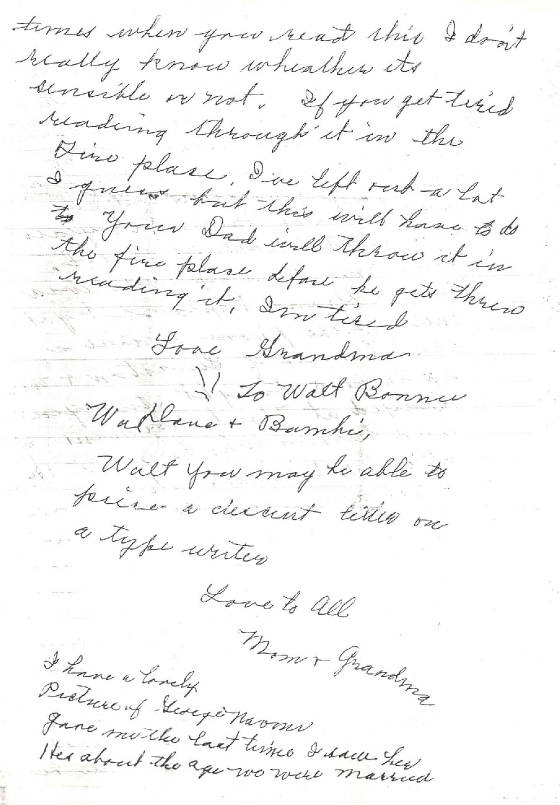 times when you read this I don't
really know wheather its
sensible or not. If you get tired
reading through it in the
Fire plase. I've left out a lot
I guess but this will have to do
to Your Dad will throw it in
the fire plase before he gets threw
reading it. Im tired
Love Grandma
!! To Walt Bonnie
& Bambi,
Walt you may be able to
a decent letter on
a type writer
Love to All
Mom & Grandma
I have a lovely
Picture of George Naomi
gave me the last time I saw her
Hes about the age we were married